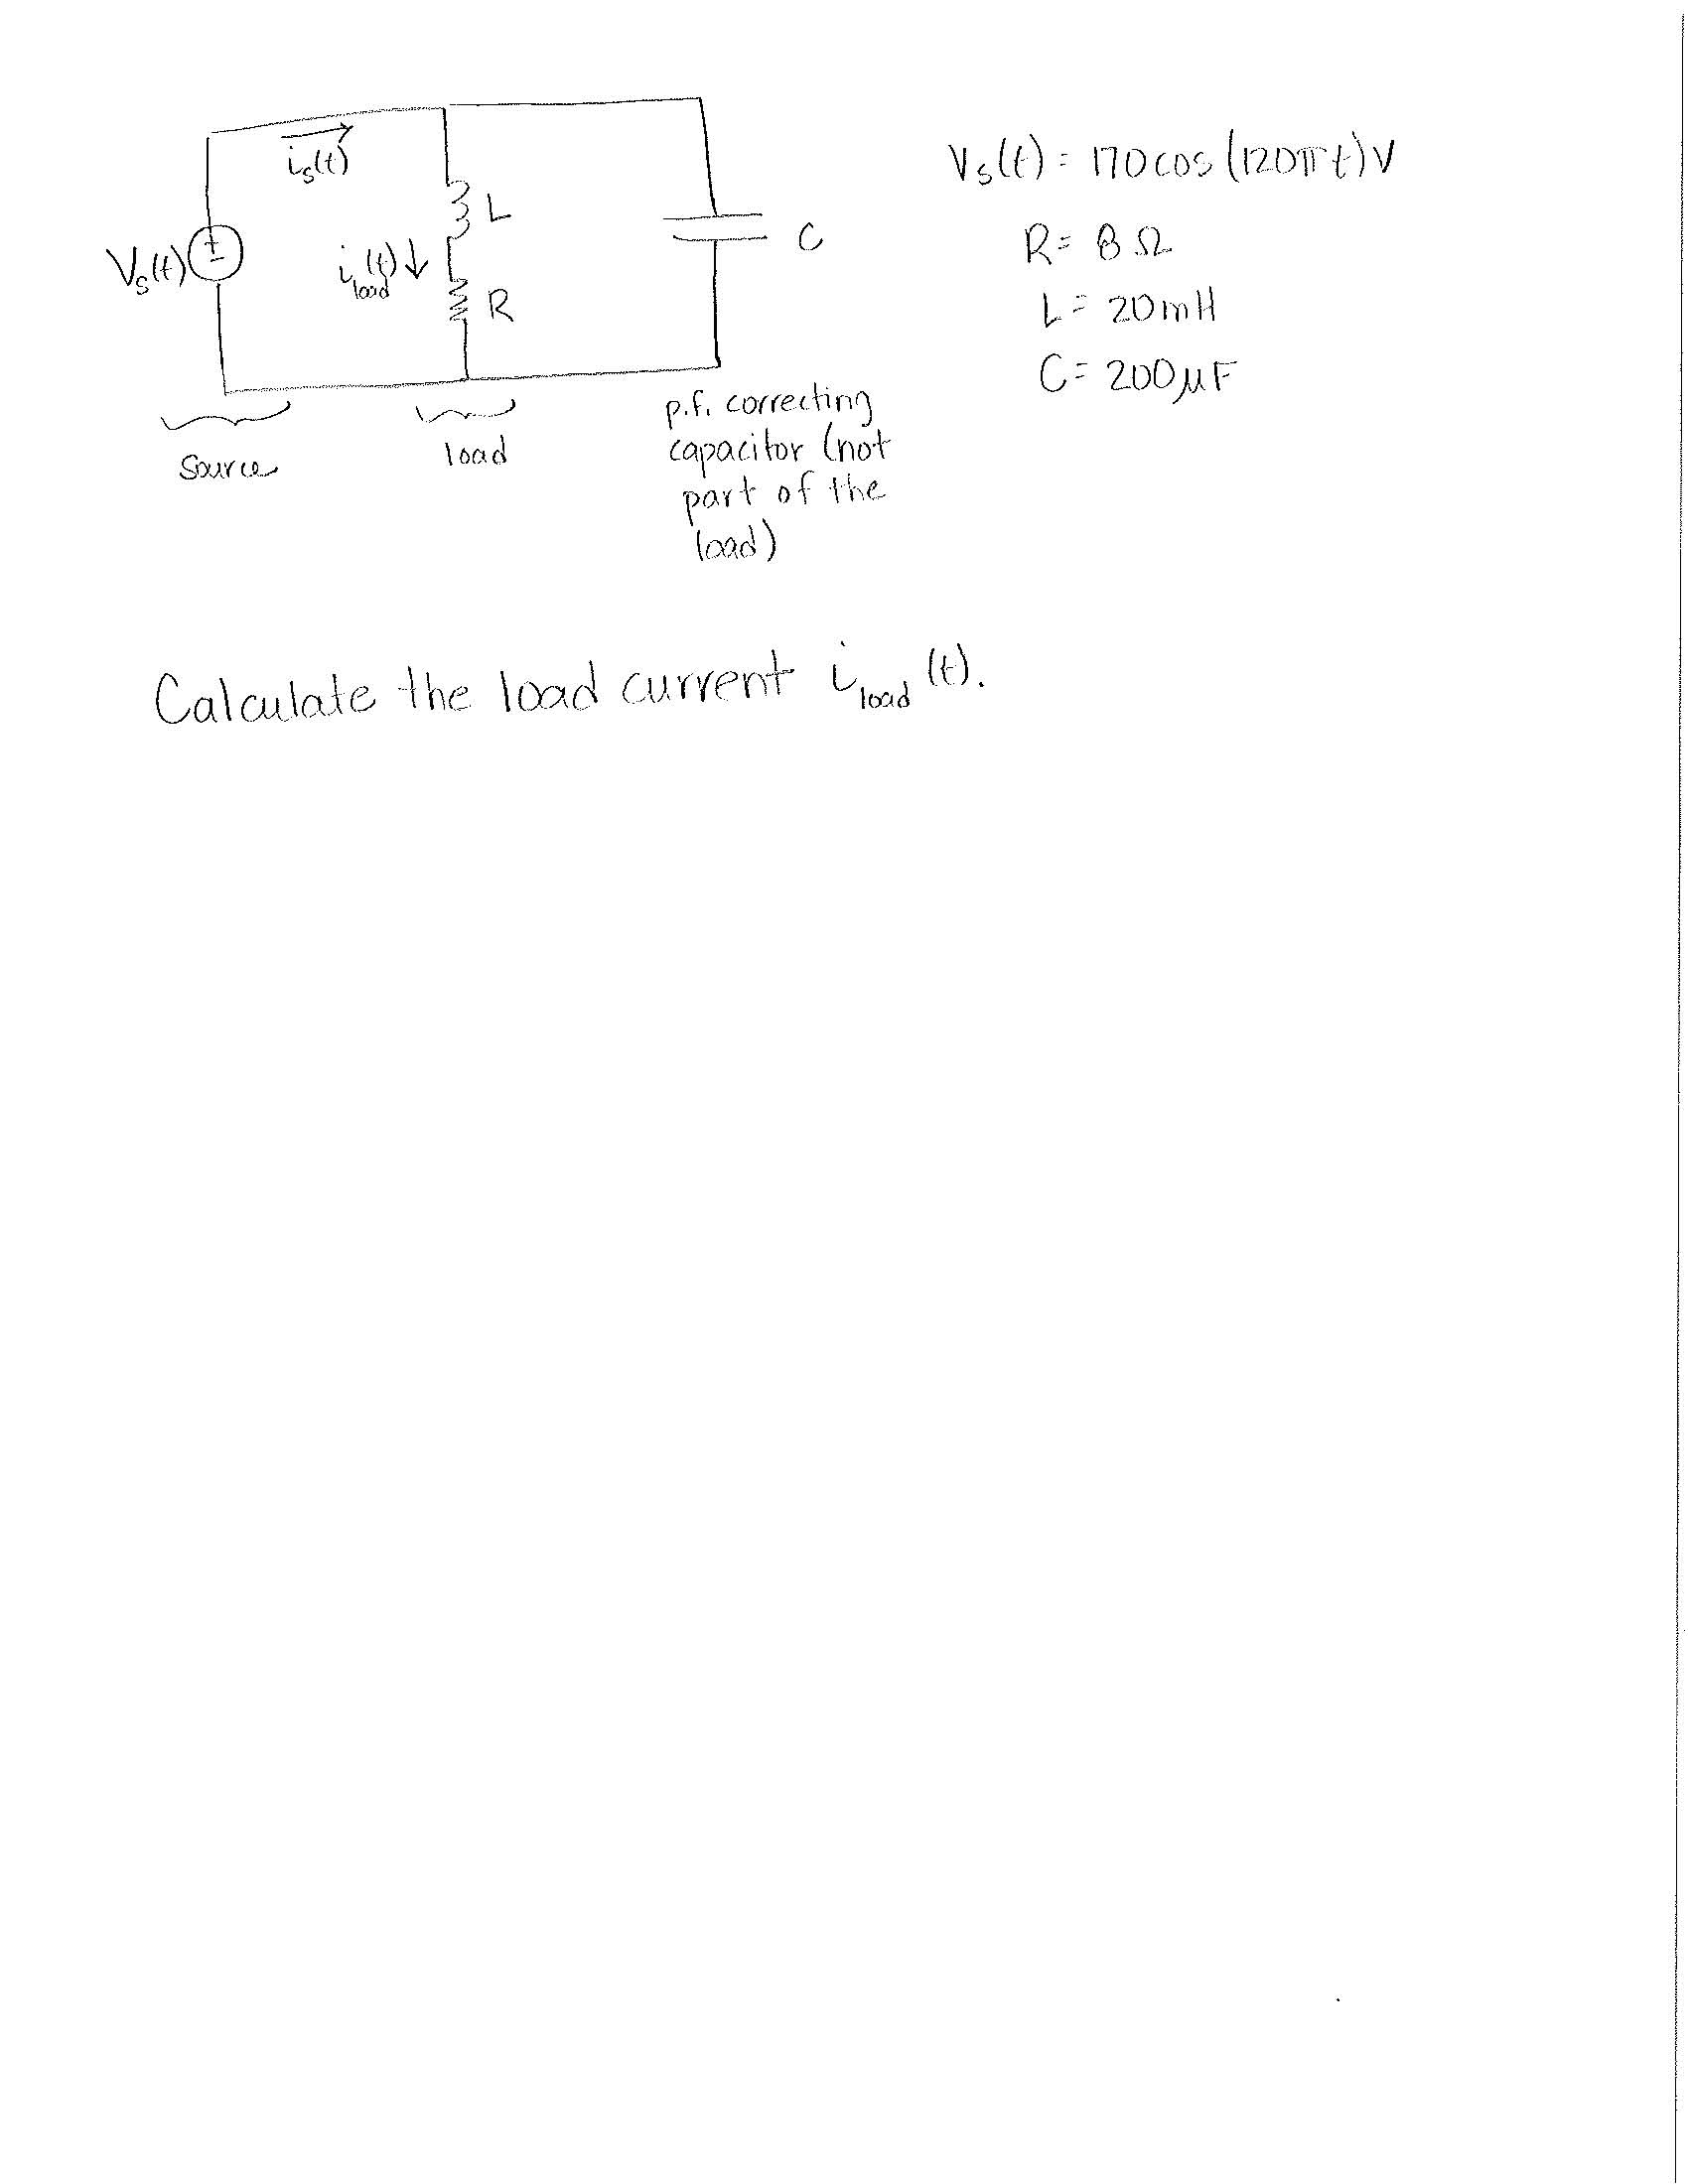 i_s(t)
V_s(t)
+
-
i_load(t) ↓
L
R
C
source
load
p.f. correcting
capacitor (not
part of the
load)
V_s(t) = 170 cos (120πt) V
R = 8 Ω
L = 20 mH
C = 200 μF
Calculate the load current i_load (t).